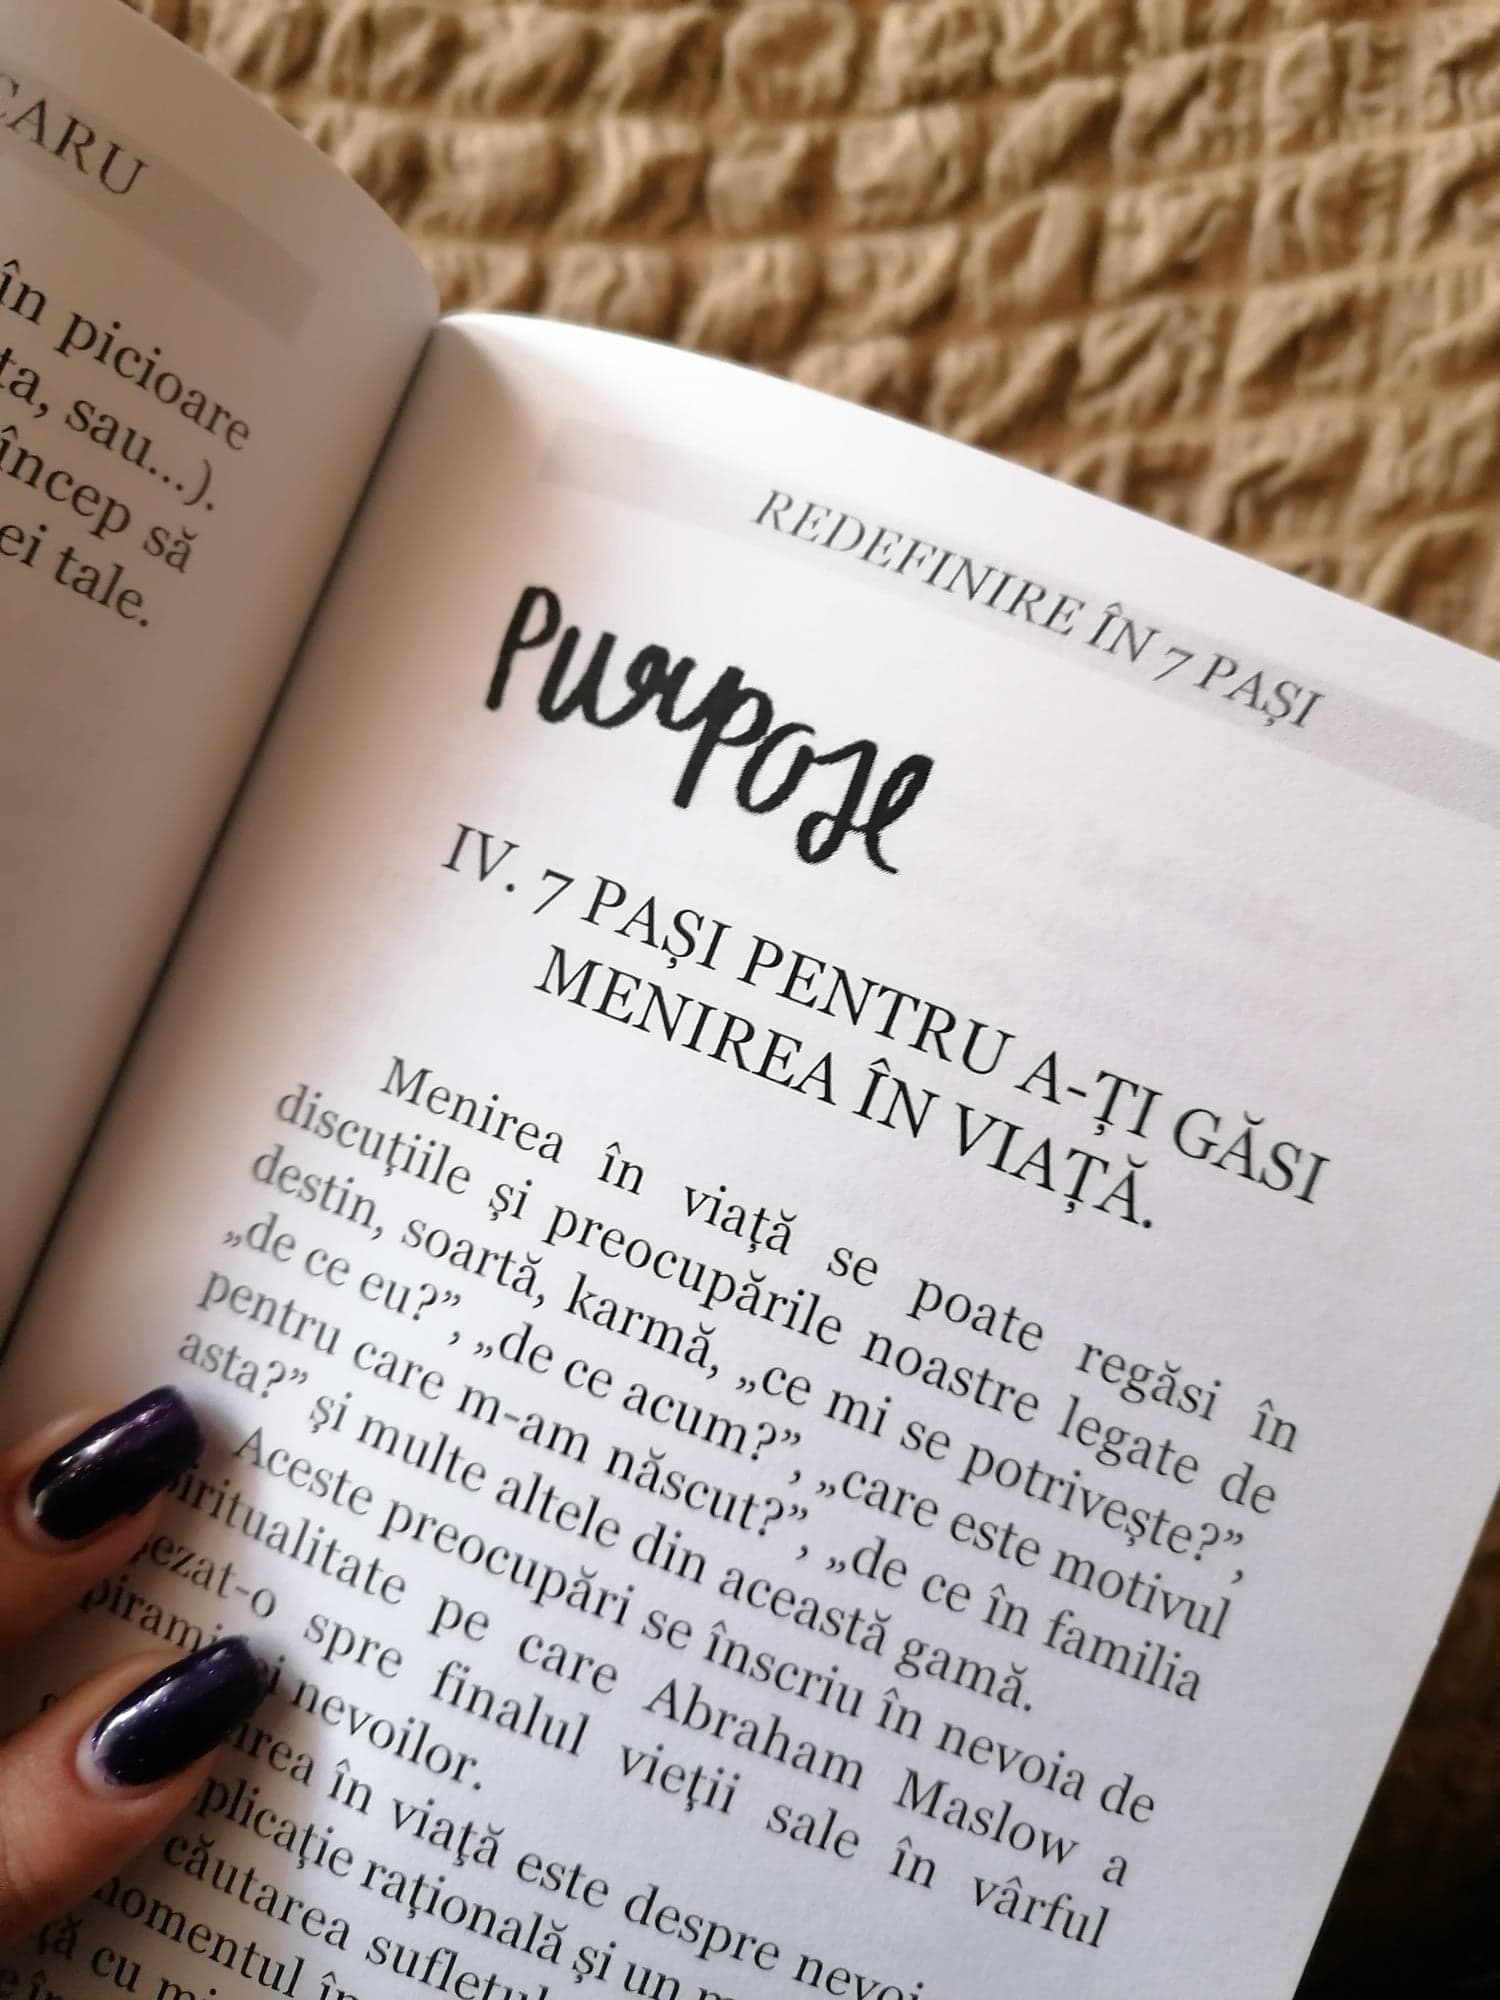 CARU
în picioare
ta, sau...).
încep să
ei tale.
REDEFINIRE ÎN 7 PAȘI
Purpose
IV. 7 PAȘI PENTRU A-ȚI GĂSI
MENIREA ÎN VIAȚĂ.
Menirea în viaţă se poate regăsi în
discuţiile şi preocupările noastre legate de
destin, soartă, karmă, „ce mi se potriveşte?”,
„de ce eu?”, „de ce acum?”, „care este motivul
pentru care m-am născut?”, „de ce în familia
asta?” şi multe altele din această gamă.
Aceste preocupări se înscriu în nevoia de
iritualitate pe care Abraham Maslow a
ezat-o spre finalul vieţii sale în vârful
pirami i nevoilor.
irea în viaţă este despre nevoi
plicaţie raţională şi un
căutarea sufletul
momentul în
ţă cu mi